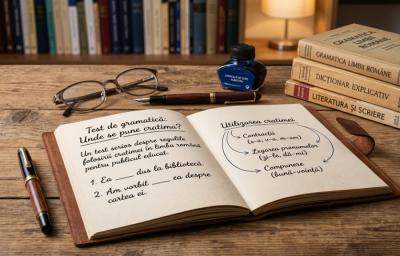 Test de gramatică:
Unde se pune cratima?
Un test serios despre regulile
folosirii cratimei în limba română
pentru publicul educat.
1. Ea ____ dus la bibliotecă.
2. Am vorbit ____ ea despre
cartea ei.
Utilizarea cratimei
Contracții
(s-a, n-a, m-am)
Legarea pronumelor
(și-le, dă-mi)
Compunere
(bună-voință)
GRAMATICA
LIMBII ROMÂNE
GRAMATICA LIMBII ROMÂNE
DICȚIONAR EXPLICATIV
LITERATURA ȘI SCRIERE